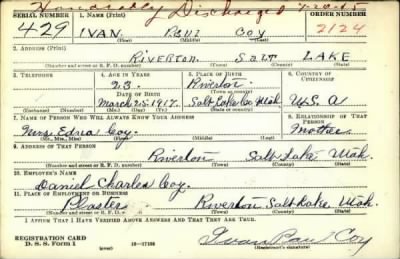 Honorably Discharged 7-20-45
SERIAL NUMBER 1. NAME (Print) ORDER NUMBER
429 IVAN PAUL COY 2124
(First) (Middle) (Last)
2. ADDRESS (Print)
RIVERTON SALT LAKE
(Number and street or R. F. D. number) (Town) (County) (State)
3. TELEPHONE 4. AGE IN YEARS 5. PLACE OF BIRTH 6. COUNTRY OF CITIZENSHIP
23 Riverton
DATE OF BIRTH (Town or county)
March 25, 1917 Salt Lake Co. Utah U.S.A
(Exchange) (Number) (Mo.) (Day) (Yr.) (State or country)
7. NAME OF PERSON WHO WILL ALWAYS KNOW YOUR ADDRESS 8. RELATIONSHIP OF THAT PERSON
Mrs. Edna Coy. Mother
(Mr., Mrs., Miss) (First) (Middle) (Last)
9. ADDRESS OF THAT PERSON
Riverton Salt Lake Utah.
(Number and street or R. F. D. number) (Town) (County) (State)
10. EMPLOYER'S NAME
Daniel Charles Coy.
11. PLACE OF EMPLOYMENT OR BUSINESS
Plaster Riverton Salt Lake. Utah
(Number and street or R. F. D. number) (Town) (County) (State)
I AFFIRM THAT I HAVE VERIFIED ABOVE ANSWERS AND THAT THEY ARE TRUE.
REGISTRATION CARD
D. S. S. Form 1 16—17105 Ivan Paul Coy
(Registrant's signature)